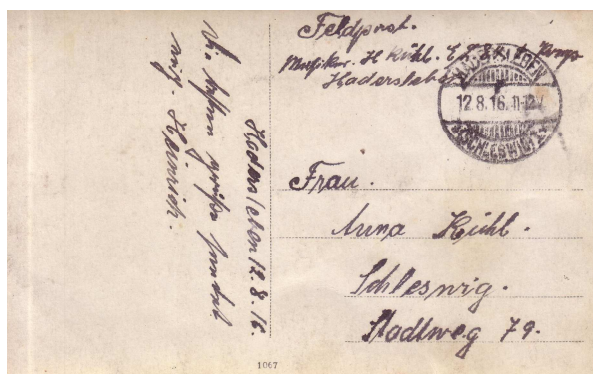 Feldpost.
Musketier. H Kühl. E.
Hadersleben
HADERSLEBEN
12.8.16. 11-12V
(SCHLESWIG)
Frau.
Anna Kühl.
Schleswig.
Stadtweg 79.
Hadersleben 12.8.16.
Die besten Grüße sendet
mitz. Heinrich.
1067